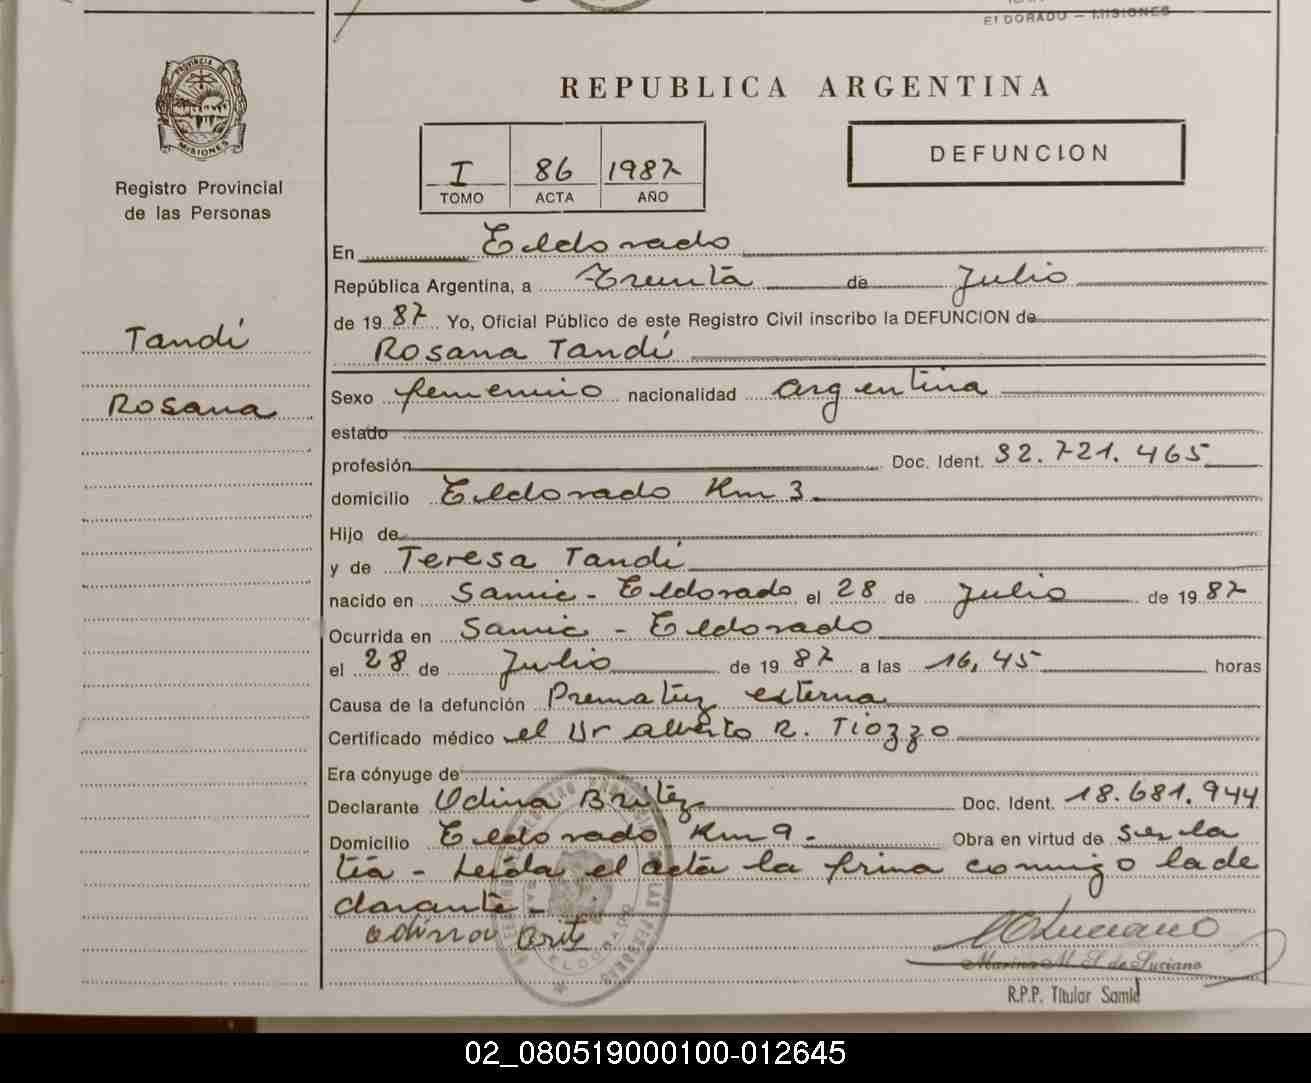 ELDORADO — MISIONES
PROVINCIA DE
MISIONES
Registro Provincial
de las Personas
Tandi
Rosana
REPUBLICA ARGENTINA
I 86 1987
TOMO ACTA AÑO
DEFUNCION
En Eldorado
República Argentina, a Treinta de Julio
de 1987 Yo, Oficial Público de este Registro Civil inscribo la DEFUNCION de
Rosana Tandi
Sexo femenino nacionalidad argentina
estado
profesión Doc. Ident. 32.721.465
domicilio Eldorado Km 3
Hijo de
y de Teresa Tandi
nacido en Samic - Eldorado el 28 de Julio de 1987
Ocurrida en Samic - Eldorado
el 28 de Julio de 1987 a las 16,45 horas
Causa de la defunción Prematuz externa
Certificado médico el Dr Alberto R. Tiozzo
Era cónyuge de
Declarante Odina Britez Doc. Ident. 18.681.944
Domicilio Eldorado Km 9 - Obra en virtud de ser la
tia - Leida el acta la firma conmigo la de
clarante -
Odina Brit
Luciano
Marina M. S. de Luciano
R.P.P. Titular Samic
ELDORADO
02_080519000100-012645